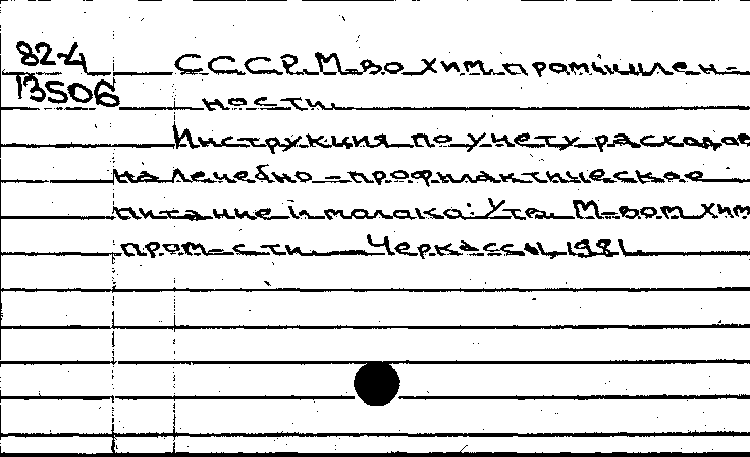 82-4
13506
СССР. М-во хим. промышлен-
ности.
Инструкция по учету расходов
на лечебно-профилактическое
питание и молоко: Утв. М-вом хим.
пром-сти. — Черкассы, 1981.